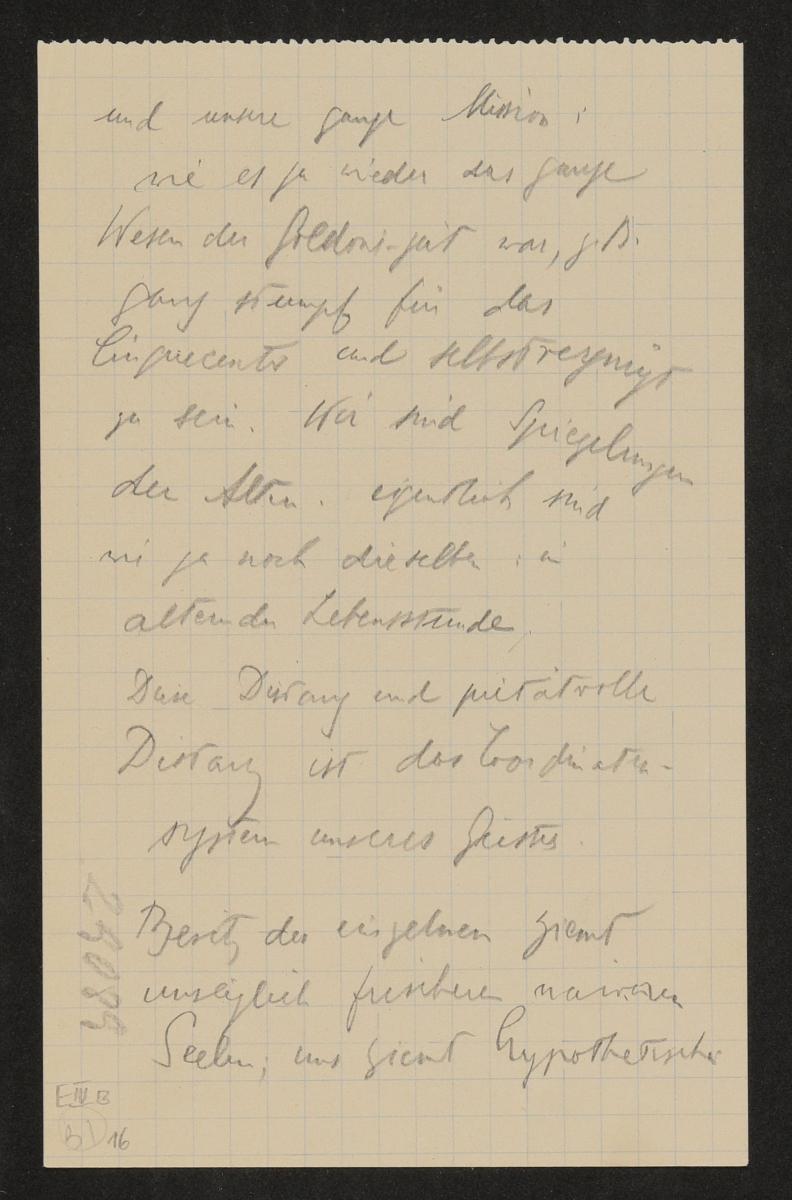 und unsere ganze Mission:
wie es ja wieder das ganze
Wesen der Goldoni-zeit war, z. B.
ganz stumpf für das
Cinquecento und selbstvergnügt
zu sein. Wir sind Spiegelungen
der Alten. eigentlich sind
wir ja noch dieselben: in
alternder Lebensstunde,
Diese Distanz und pietätvolle
Distanz ist das Coordinaten-
system unseres Geistes.
Besitz des einzelnen ziemt
unsäglich frischeren naiveren
Seelen; uns ziemt hypothetischer
24089
E IV B
B I 16